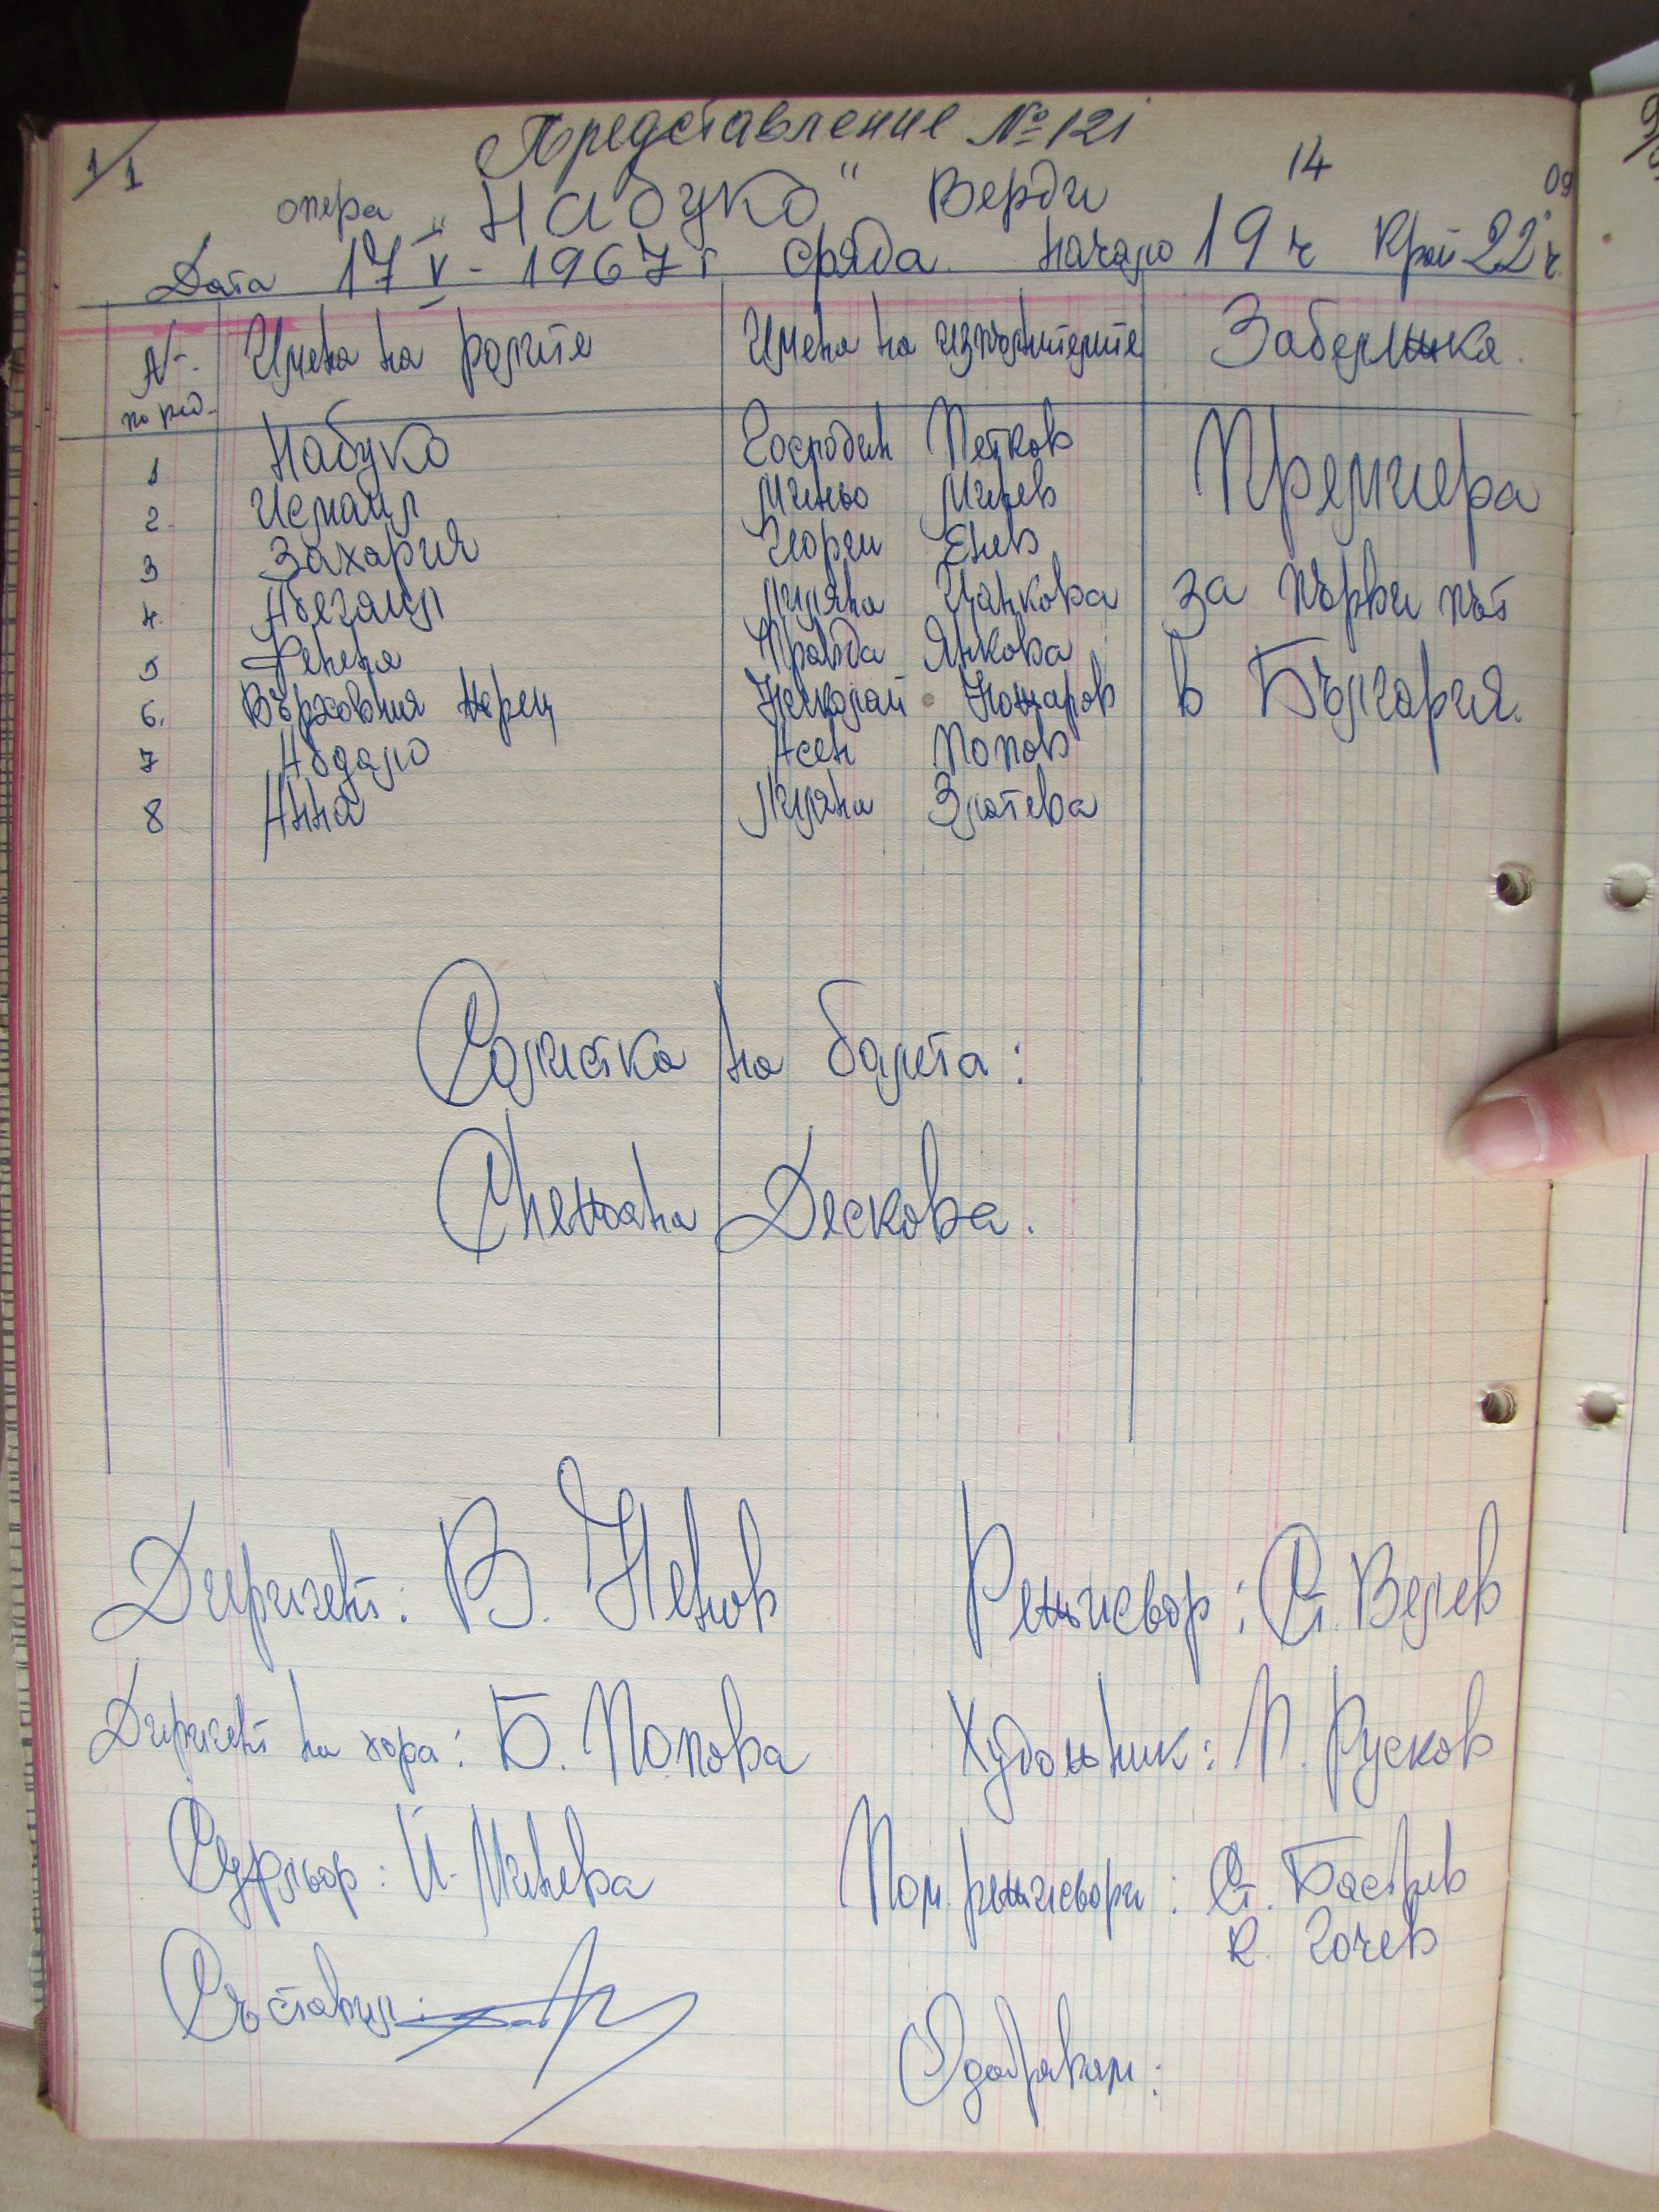 1/1
Представление №121
14
09
опера „Набуко" Верди
Дата 17 V - 1967 г сряда. Начало 19 ч Край 22 ч.
№ по ред. Имена на ролите Имена на изпълнителите Забележка.
1 Набуко Господин Петков Премиера
2. Исмаил Миньо Минев
3 Захария Георги Енев
4. Абегаил Лиляна Цанкова за първи път
5 Фенена Правда Янкова
6. Върховния жрец Николай Кожаров в България.
7 Абдало Асен Попов
8 Анна Лиляна Златева
Солистка на балета:
Снежана Дескова.
Диригент: В. Ненов Режисьор: Ст. Велев
Диригент на хора: Б. Попова Художник: П. Русков
Суфльор: Й. Минева Пом. режисьори: Ст.
К. Гочев
Съставил:
Одобрявам: